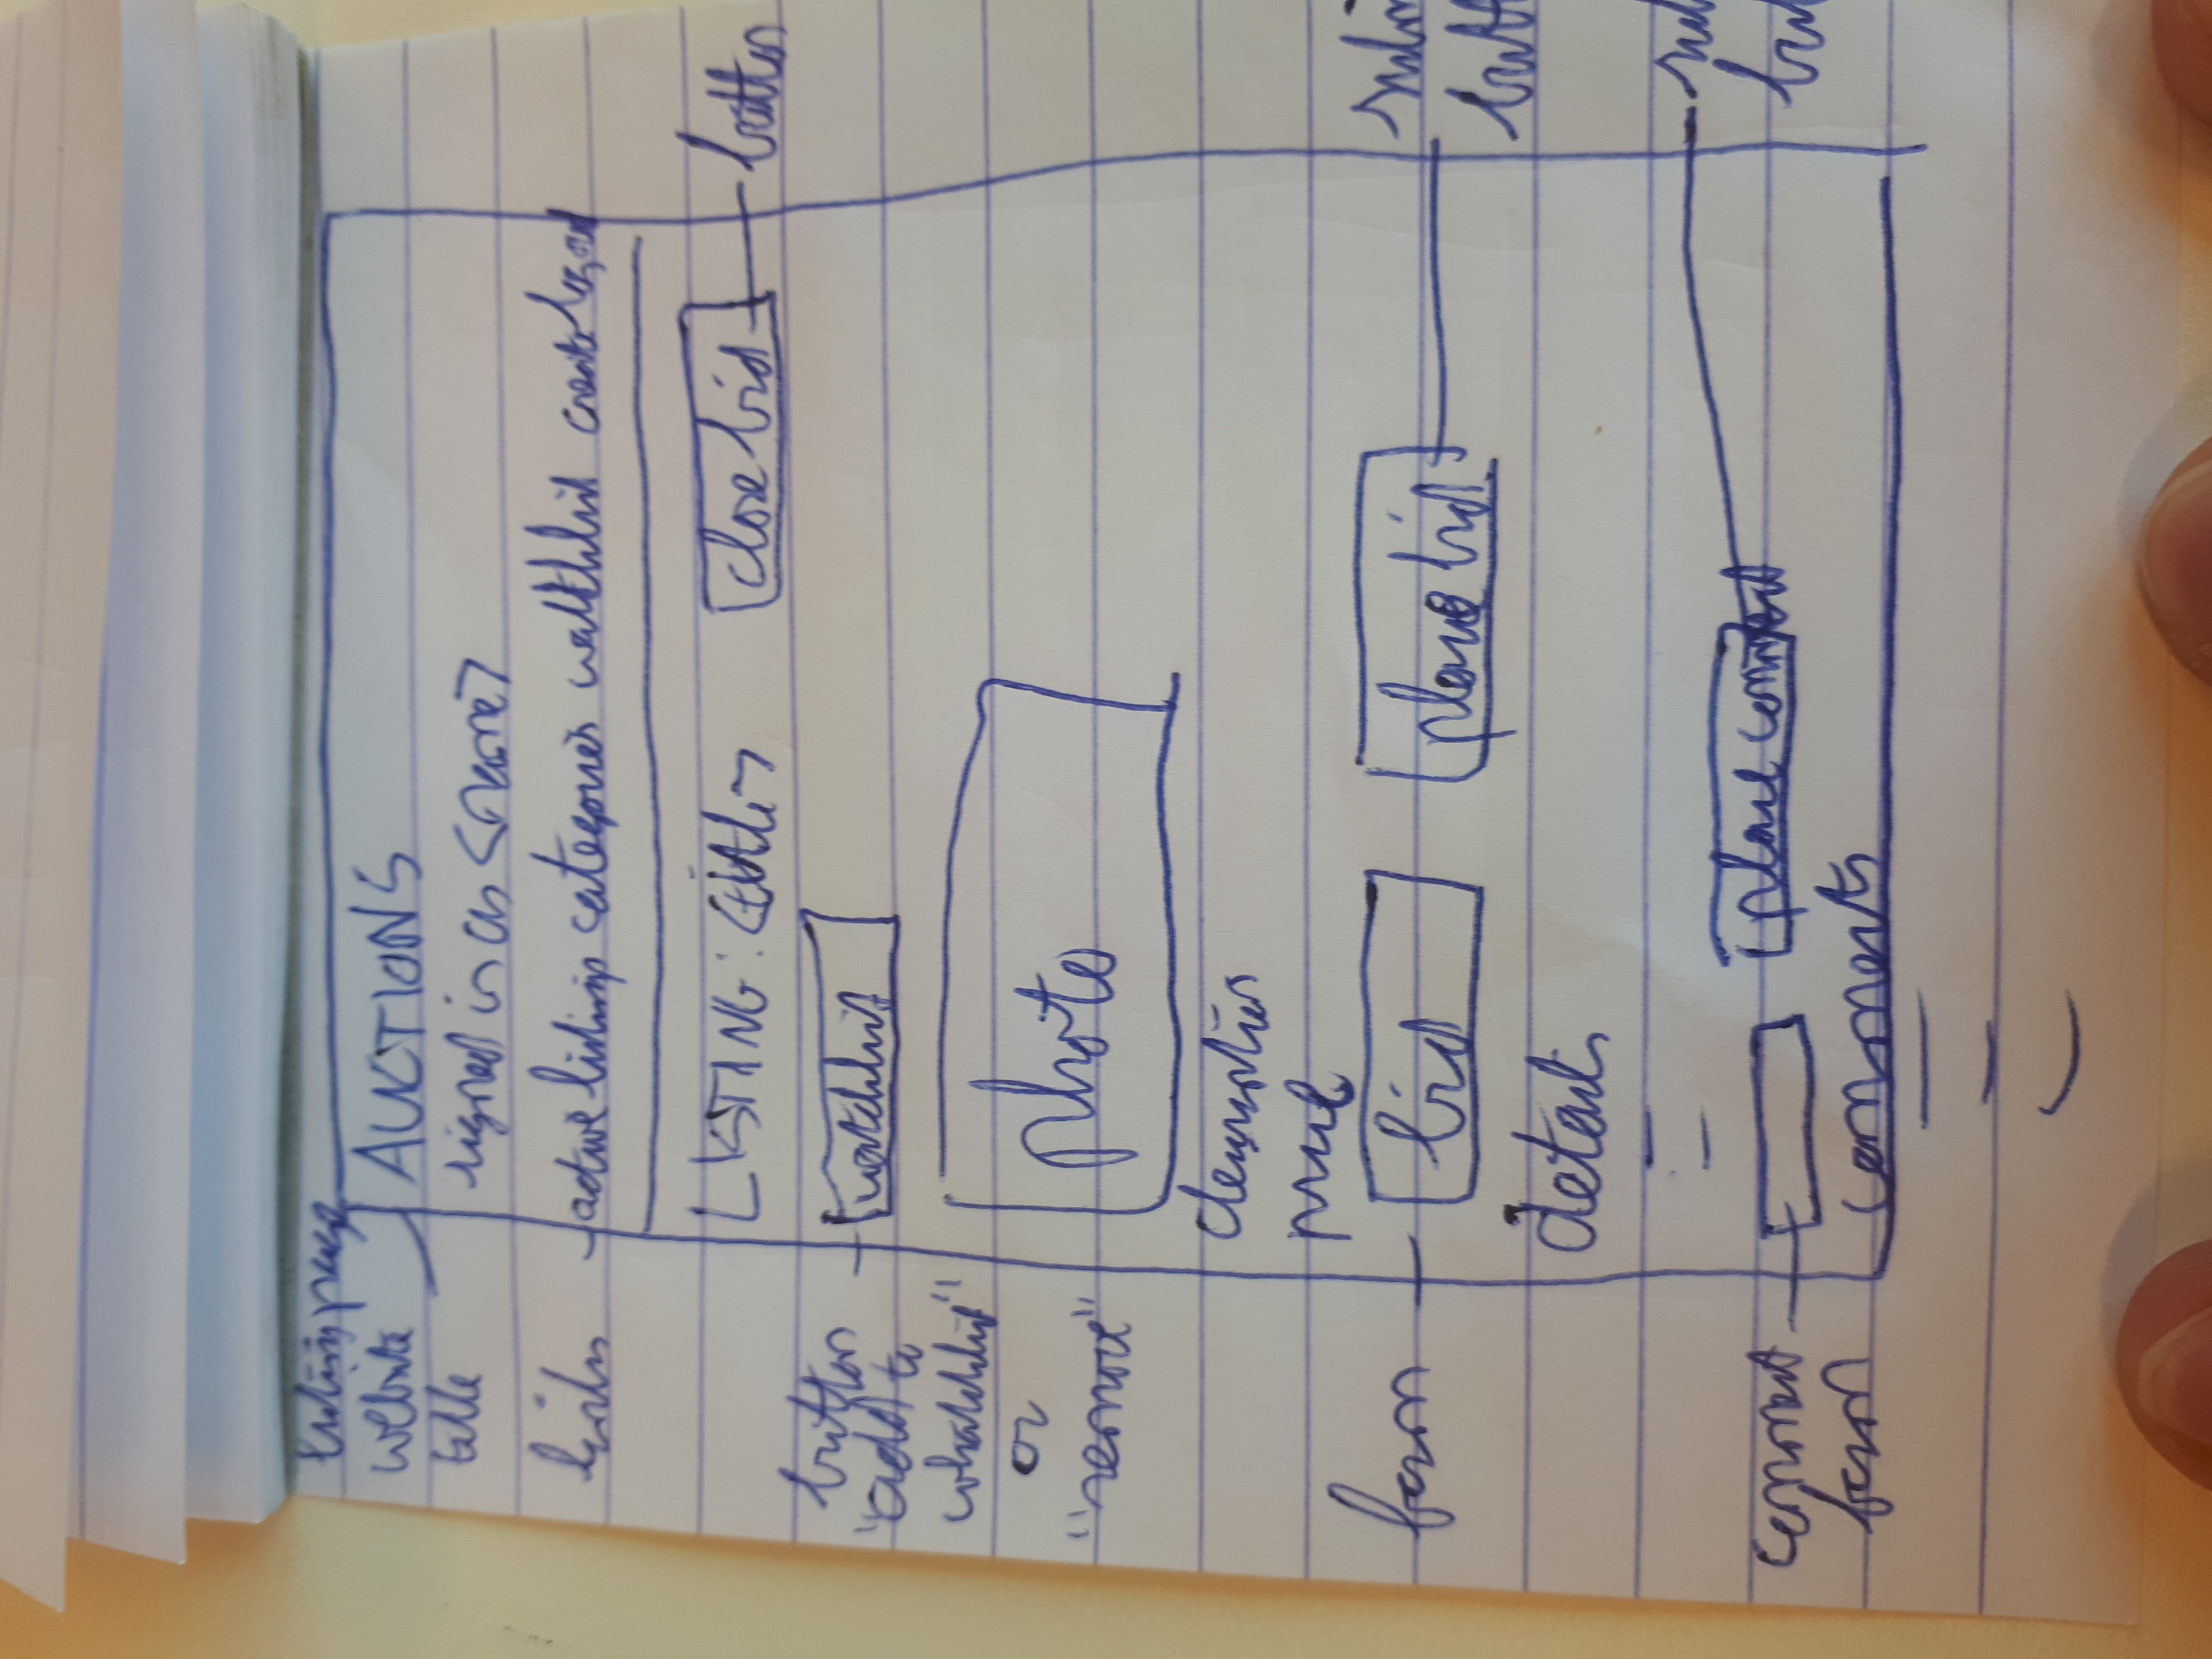 listing page
website
title
AUCTIONS
signed in as <name>
links
active listings categories watchlist create log out
LISTING: <title>
close bid
button
button
"add to
whatchlist"
or
"remove"
watchlist
photo
description
price
form
bid
place bid
details
comment
form
place comment
comments